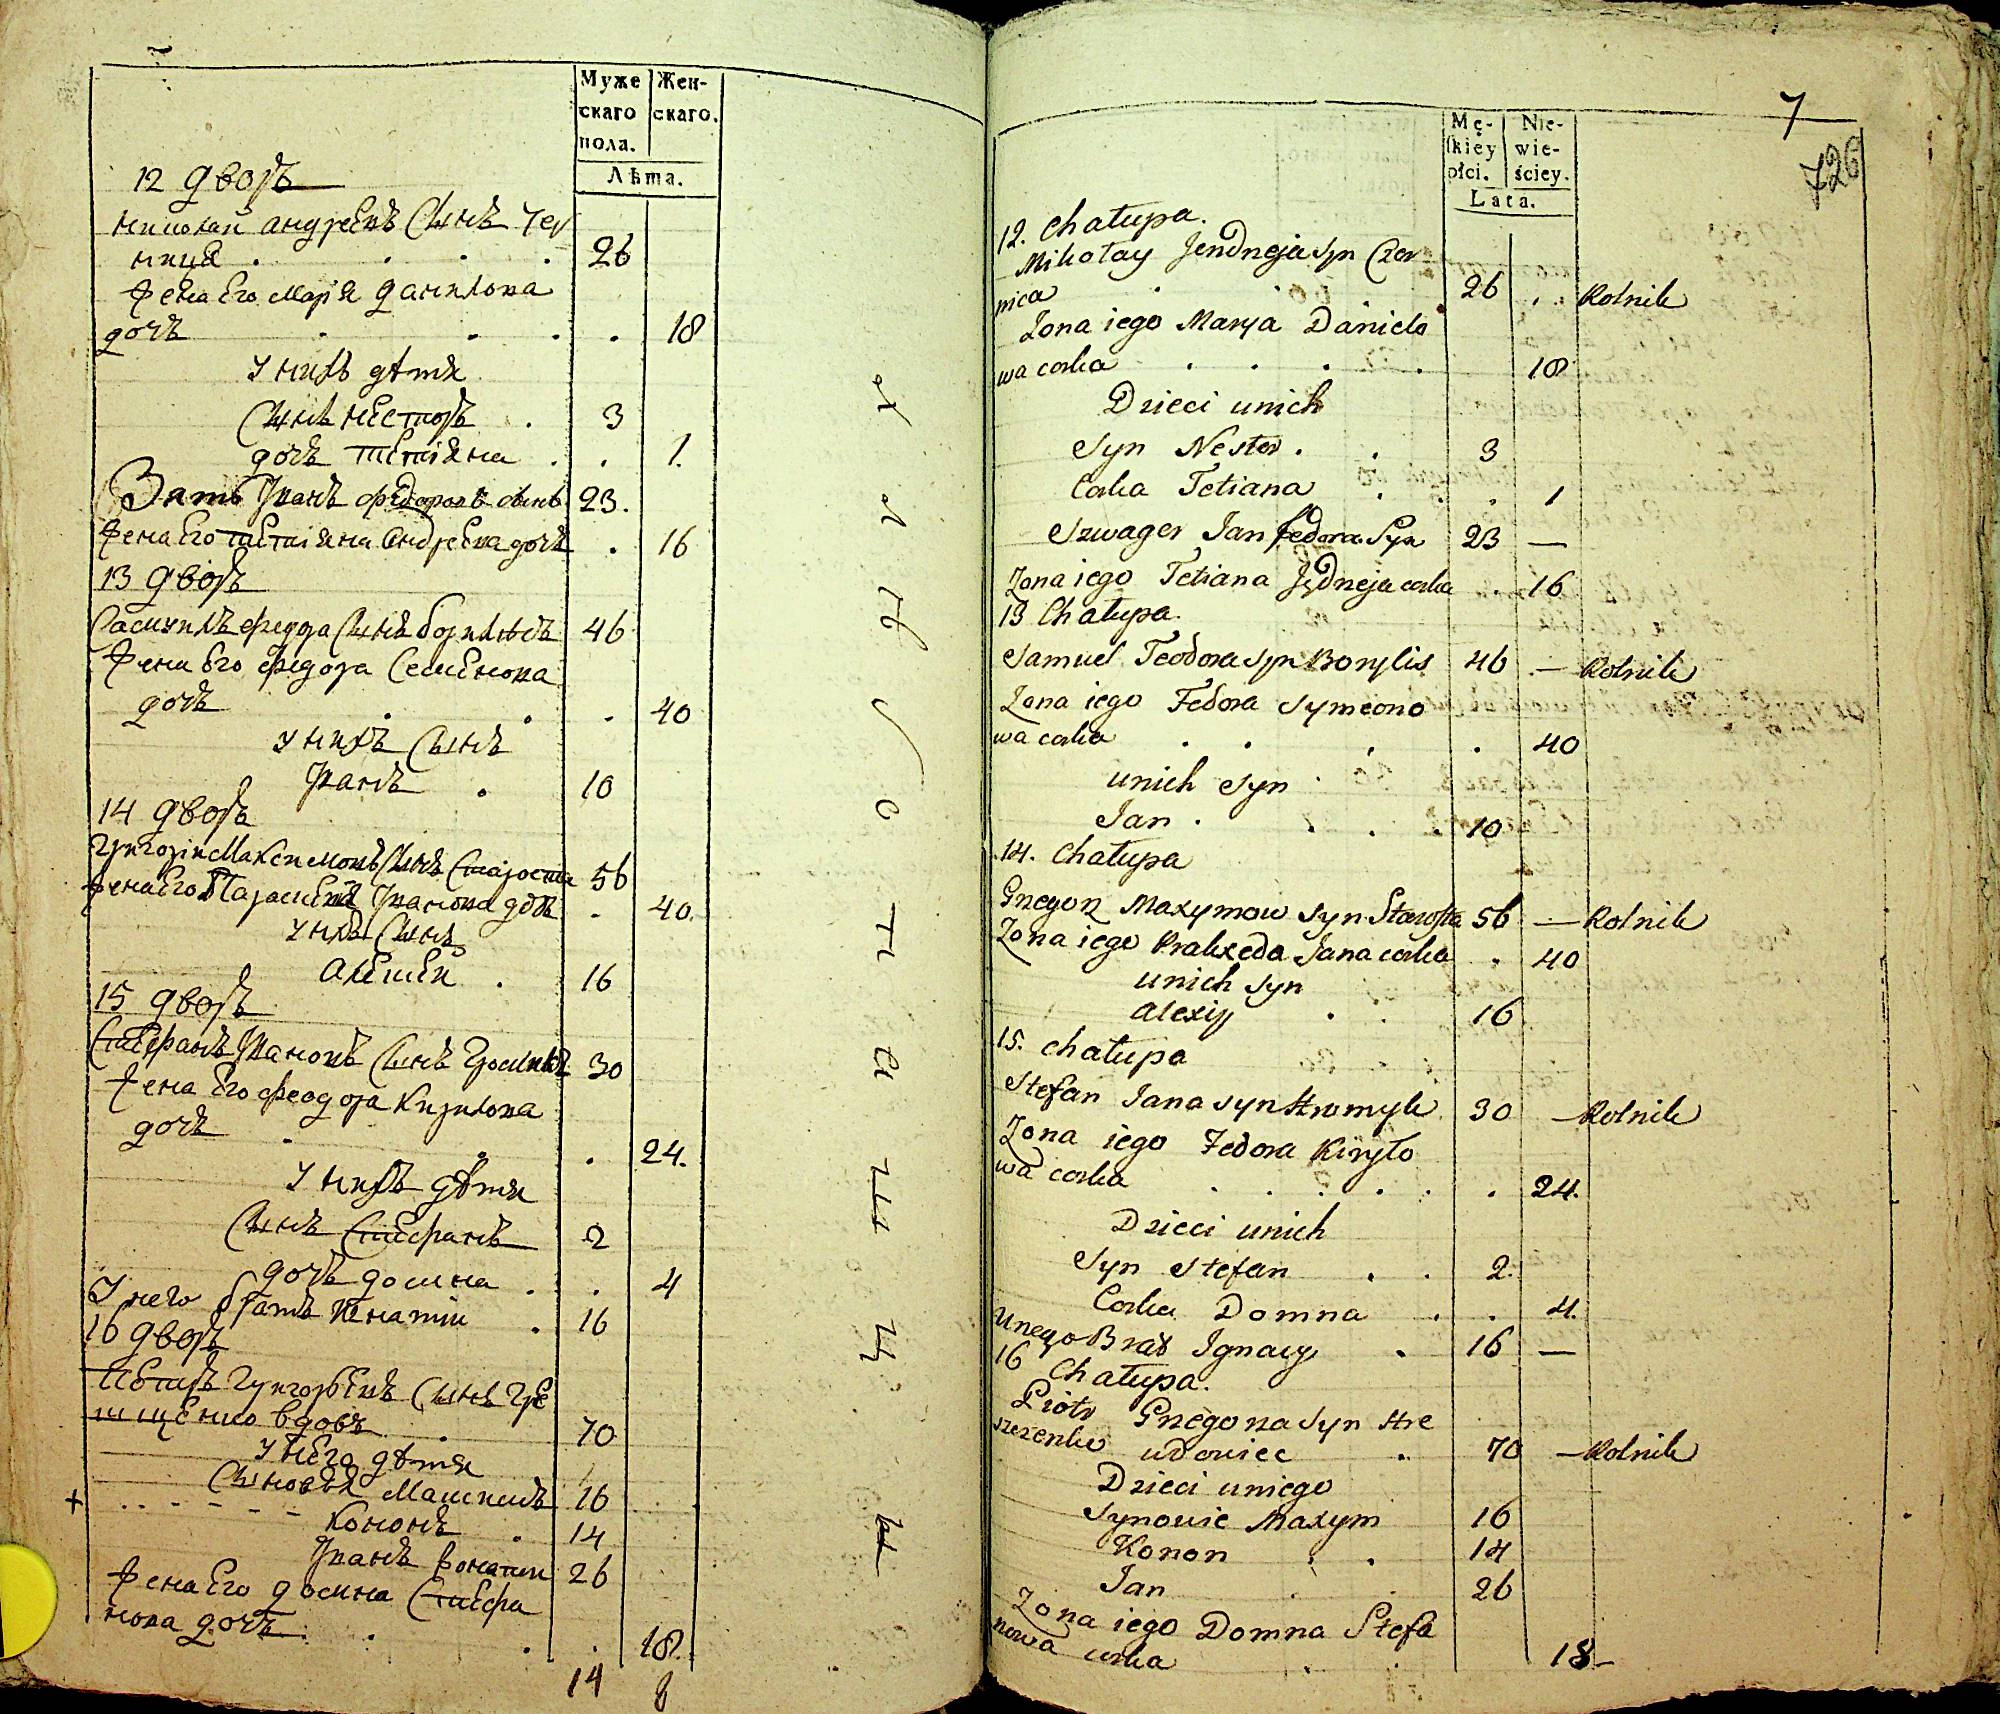 Муже
скаго
пола.
Жен-
скаго.
Лѣта.
12 дворъ
Николай Андреевъ Сынъ Чер
ница . . . . 26
Жена Его Марія Данилова
дочь . . . . 18
У нихъ дѣти
Сынъ Несторъ . 3
дочь Тетіяна . . 1.
Зять Иванъ Федоровъ сынъ 23.
Жена Его Тетіяна Андреева дочь . 16
13 дворъ
Самуилъ Федора Сынъ 46
Жена Его Федора Семенова
дочь . . . 40
У нихъ Сынъ
Иванъ . 10
14 дворъ
Григорій Максимовъ Сынъ Староста 56
Жена Его Параскевія Иванова дочь . 40.
У нихъ Сынъ
Алексей . 16
15 дворъ
Стефанъ Ивановъ Сынъ Громыкъ 30
Жена Его Феодора Кирилова
дочь . . . 24.
У нихъ дѣти
Сынъ Стефанъ 2
дочь Домна . . 4
У него братъ Игнатій . 16
16 дворъ
Петръ Григорьевъ Сынъ Гре
щенко вдовъ . 70
У него дѣти
Сыновья Максимъ 16
+ Кононъ . 14
Иванъ 26
Жена Его Домна Стефа
нова дочь . . . 18.
14 8
7
726
Mę-
skiey
płci.
Nie-
wie-
ściey.
Lata.
12. Chałupa.
Mikołay Jendrzeja Syn Czer
nica . . . 26 . . Rolnik
Żona iego Marya Daniło
wa corka . . . . 18
Dzieci unich
Syn Nestor . . 3
Corka Tetiana . . . 1
Szwager Jan Fedora Syn 23 —
Żona iego Tetiana Jędrzeja corka . 16
13 Chałupa.
Samuel Teodora Syn Borylis 46 — Rolnik
Żona iego Fedora Symeono
wa corka . . . . 40
unich Syn
Jan . . . . 10
14. Chałupa
Grzegorz Maxymow Syn Starosta 56 — Rolnik
Żona iego Prakseda Jana corka . 40
unich Syn
Alexiy . . 16
15. Chałupa
Stefan Jana Syn Hromyk 30 — Rolnik
Żona iego Fedora Kiryło
wa corka . . . . . . 24.
Dzieci unich
Syn Stefan . . 2.
Corka Domna . . 4.
Unego Brat Ignacy . 16 —
16 Chałupa.
Piotr Grzegorza Syn Hre
szczenko udowiec . 70 — Rolnik
Dzieci uniego
Synowie Maxym 16
Konon . . 14
Jan . . 26
Żona iego Domna Stefa
nowa corka . . 18 —